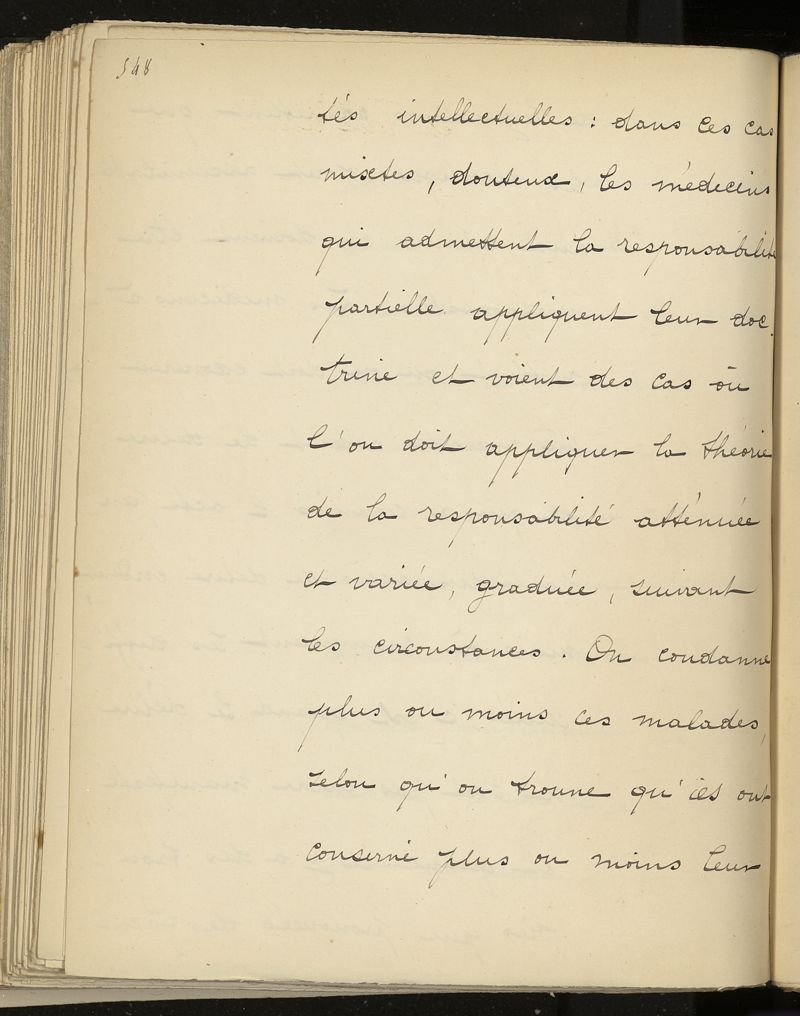 548
tés intellectuelles : dans ces cas
mixtes, douteux, les médecins
qui admettent la responsabilité
partielle appliquent leur doc-
trine et voient des cas où
l'on doit appliquer la théorie
de la responsabilité atténuée
et variée, graduée, suivant
les circonstances. On condanne
plus ou moins ces malades,
selon qu'on trouve qu'ils ont
conservé plus ou moins leur